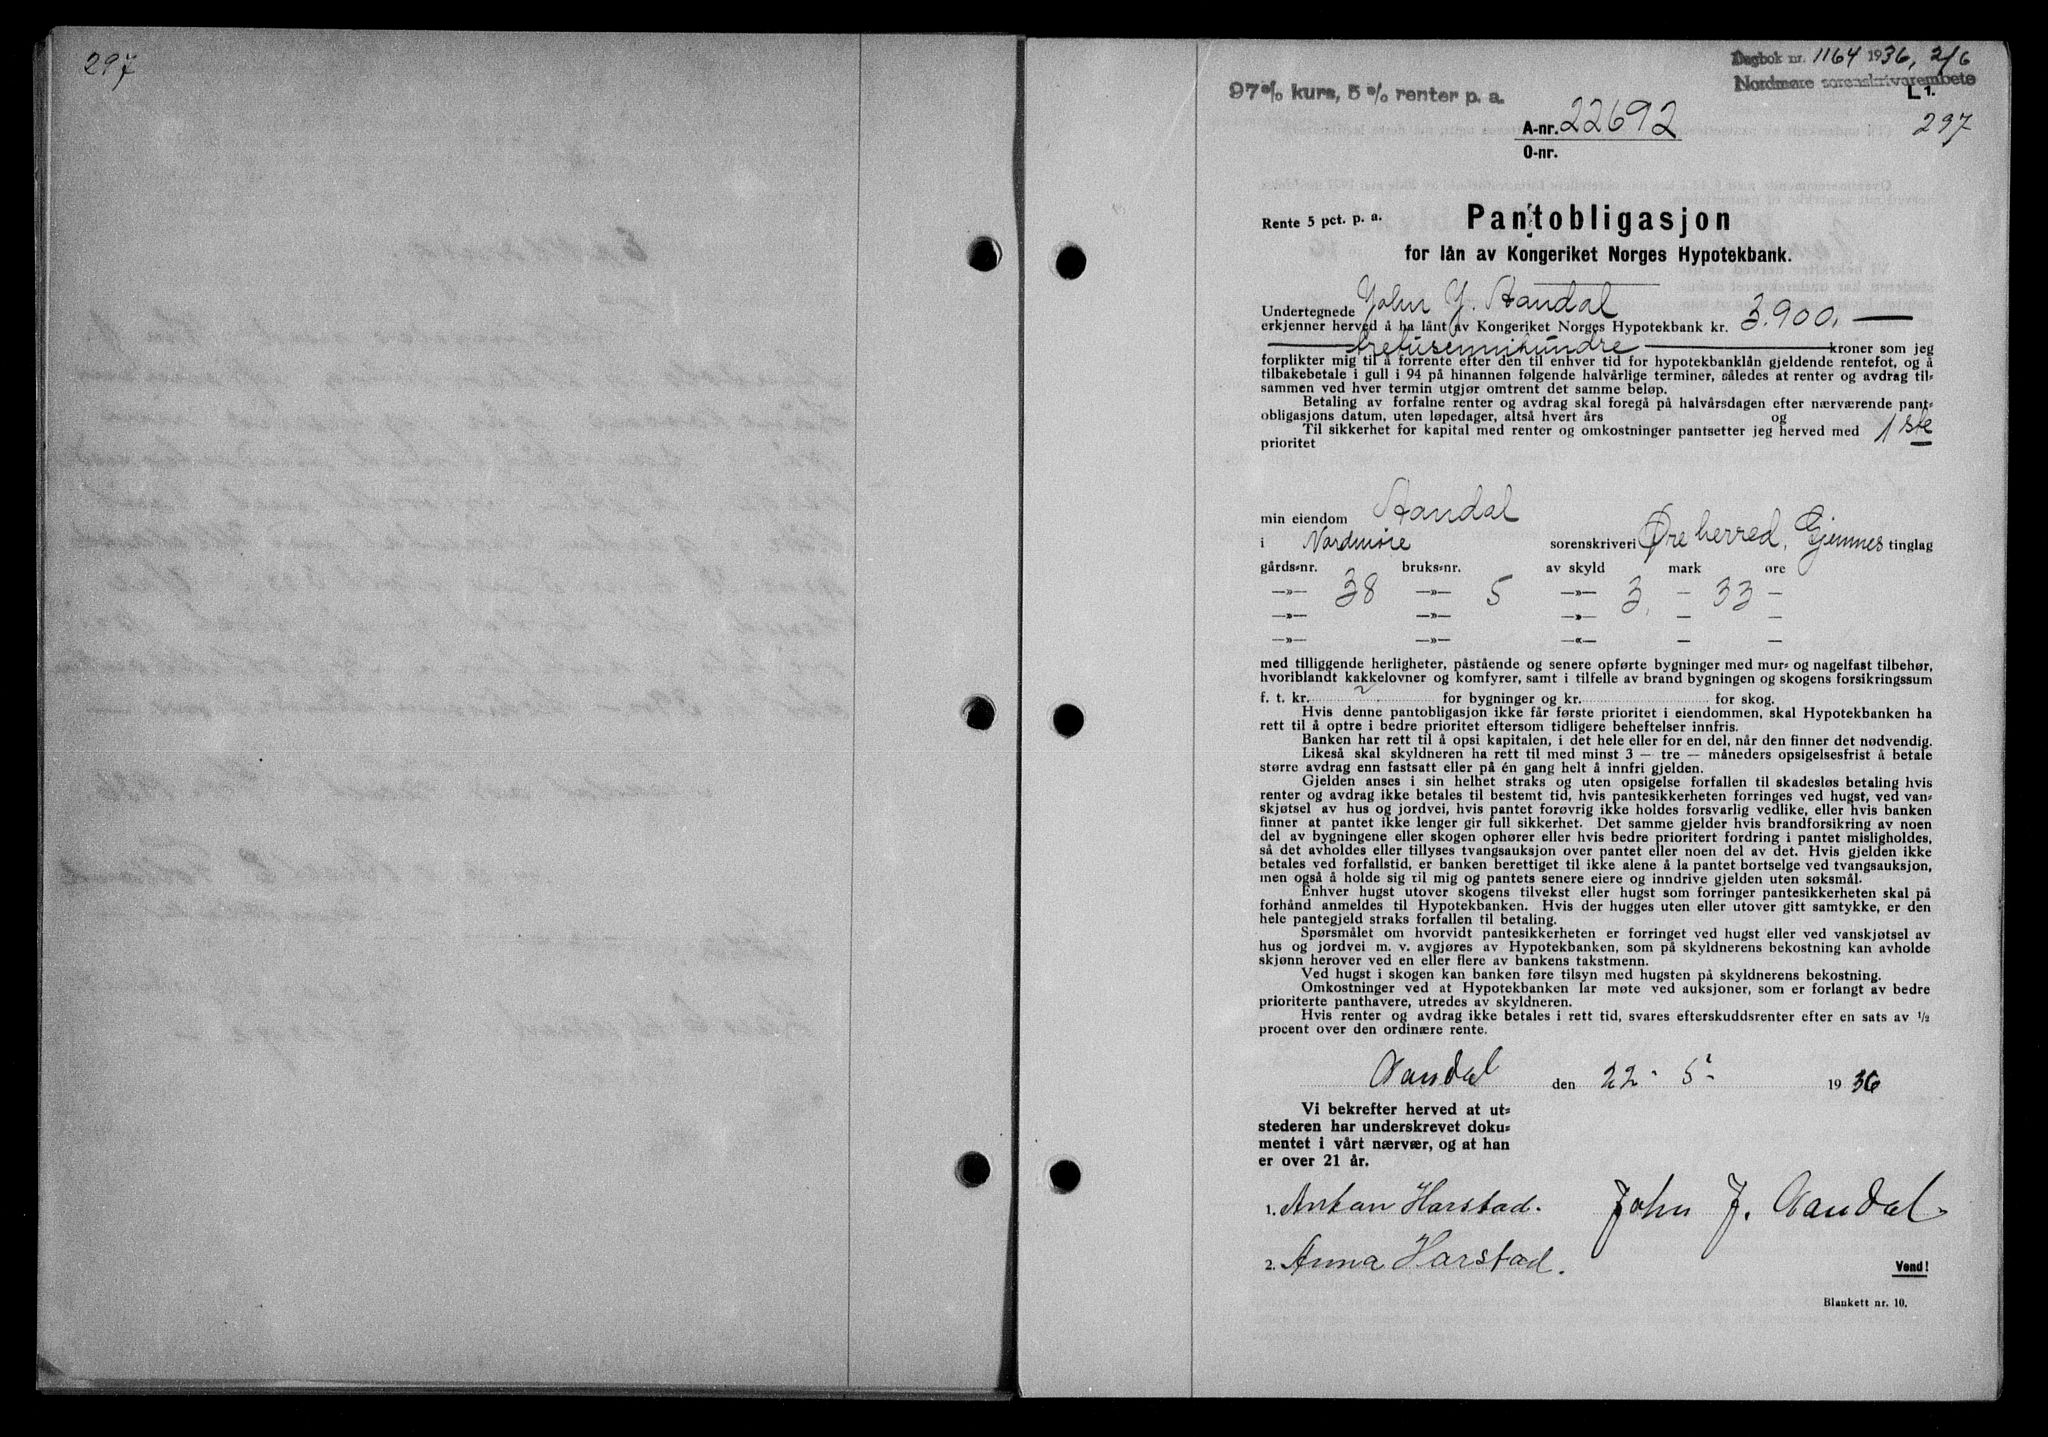 297
Dagbok nr. 1164 1936, 2/6
Nordmøre sorenskrivarembete
L 1.
97 % kurs, 5 % renter p. a.
297
A-nr. 22692
O-nr.
Rente 5 pct. p. a.
Pantobligasjon
for lån av Kongeriket Norges Hypotekbank.
Undertegnede John J. Aandal
erkjenner herved å ha lånt av Kongeriket Norges Hypotekbank kr. 3.900,—
— tretusennihundre — kroner som jeg
forplikter mig til å forrente efter den til enhver tid for hypotekbanklån gjeldende rentefot, og å
tilbakebetale i gull i 94 på hinannen følgende halvårlige terminer, således at renter og avdrag til-
sammen ved hver termin utgjør omtrent det samme beløp.
Betaling av forfalne renter og avdrag skal foregå på halvårsdagen efter nærværende pant-
obligasjons datum, uten løpedager, altså hvert års og
Til sikkerhet for kapital med renter og omkostninger pantsetter jeg herved med 1ste
prioritet
min eiendom Aandal
i Nordmøre sorenskriveri Øre herred, Gjemnes tinglag
gårds-nr. bruks-nr. av skyld mark øre
—»— 38 —»— 5 —»— 3, — 33 —
—»— —»— —»— — —
—»— —»— —«— — —
med tilliggende herligheter, påstående og senere opførte bygninger med mur- og nagelfast tilbehør,
hvoriblandt kakkelovner og komfyrer, samt i tilfelle av brand bygningen og skogens forsikringssum
f. t. kr. for bygninger og kr. for skog.
Hvis denne pantobligasjon ikke får første prioritet i eiendommen, skal Hypotekbanken ha
rett til å optre i bedre prioritet eftersom tidligere beheftelser innfris.
Banken har rett til å opsi kapitalen, i det hele eller for en del, når den finner det nødvendig.
Likeså skal skyldneren ha rett til med minst 3 — tre — måneders opsigelsesfrist å betale
større avdrag enn fastsatt eller på én gang helt å innfri gjelden.
Gjelden anses i sin helhet straks og uten opsigelse forfallen til skadesløs betaling hvis
renter og avdrag ikke betales til bestemt tid, hvis pantesikkerheten forringes ved hugst, ved van-
skjøtsel av hus og jordvei, hvis pantet forøvrig ikke holdes forsvarlig vedlike, eller hvis banken
finner at pantet ikke lenger gir full sikkerhet. Det samme gjelder hvis brandforsikring av noen
del av bygningene eller skogen ophører eller hvis bedre prioritert fordring i pantet misligholdes,
så det avholdes eller tillyses tvangsauksjon over pantet eller noen del av det. Hvis gjelden ikke
betales ved forfallstid, er banken berettiget til ikke alene å la pantet bortselge ved tvangsauksjon,
men også å holde sig til mig og pantets senere eiere og inndrive gjelden uten søksmål.
Enhver hugst utover skogens tilvekst eller hugst som forringer pantesikkerheten skal på
forhånd anmeldes til Hypotekbanken. Hvis der hugges uten eller utover gitt samtykke, er den
hele pantegjeld straks forfallen til betaling.
Spørsmålet om hvorvidt pantesikkerheten er forringet ved hugst eller ved vanskjøtsel av
hus og jordvei m. v. avgjøres av Hypotekbanken, som på skyldnerens bekostning kan avholde
skjønn herover ved en eller flere av bankens takstmenn.
Ved hugst i skogen kan banken føre tilsyn med hugsten på skyldnerens bekostning.
Omkostninger ved at Hypotekbanken lar møte ved auksjoner, som er forlangt av bedre
prioriterte panthavere, utredes av skyldneren.
Hvis renter og avdrag ikke betales i rett tid, svares efterskuddsrenter efter en sats av 1/2
procent over den ordinære rente.
Aandal den 22 - 5 - 1936
Vi bekrefter herved at ut-
stederen har underskrevet doku-
mentet i vårt nærvær, og at han
er over 21 år.
1. Anton Harstad. John J. Aandal
2. Anna Harstad.
Vend!
Blankett nr. 10.